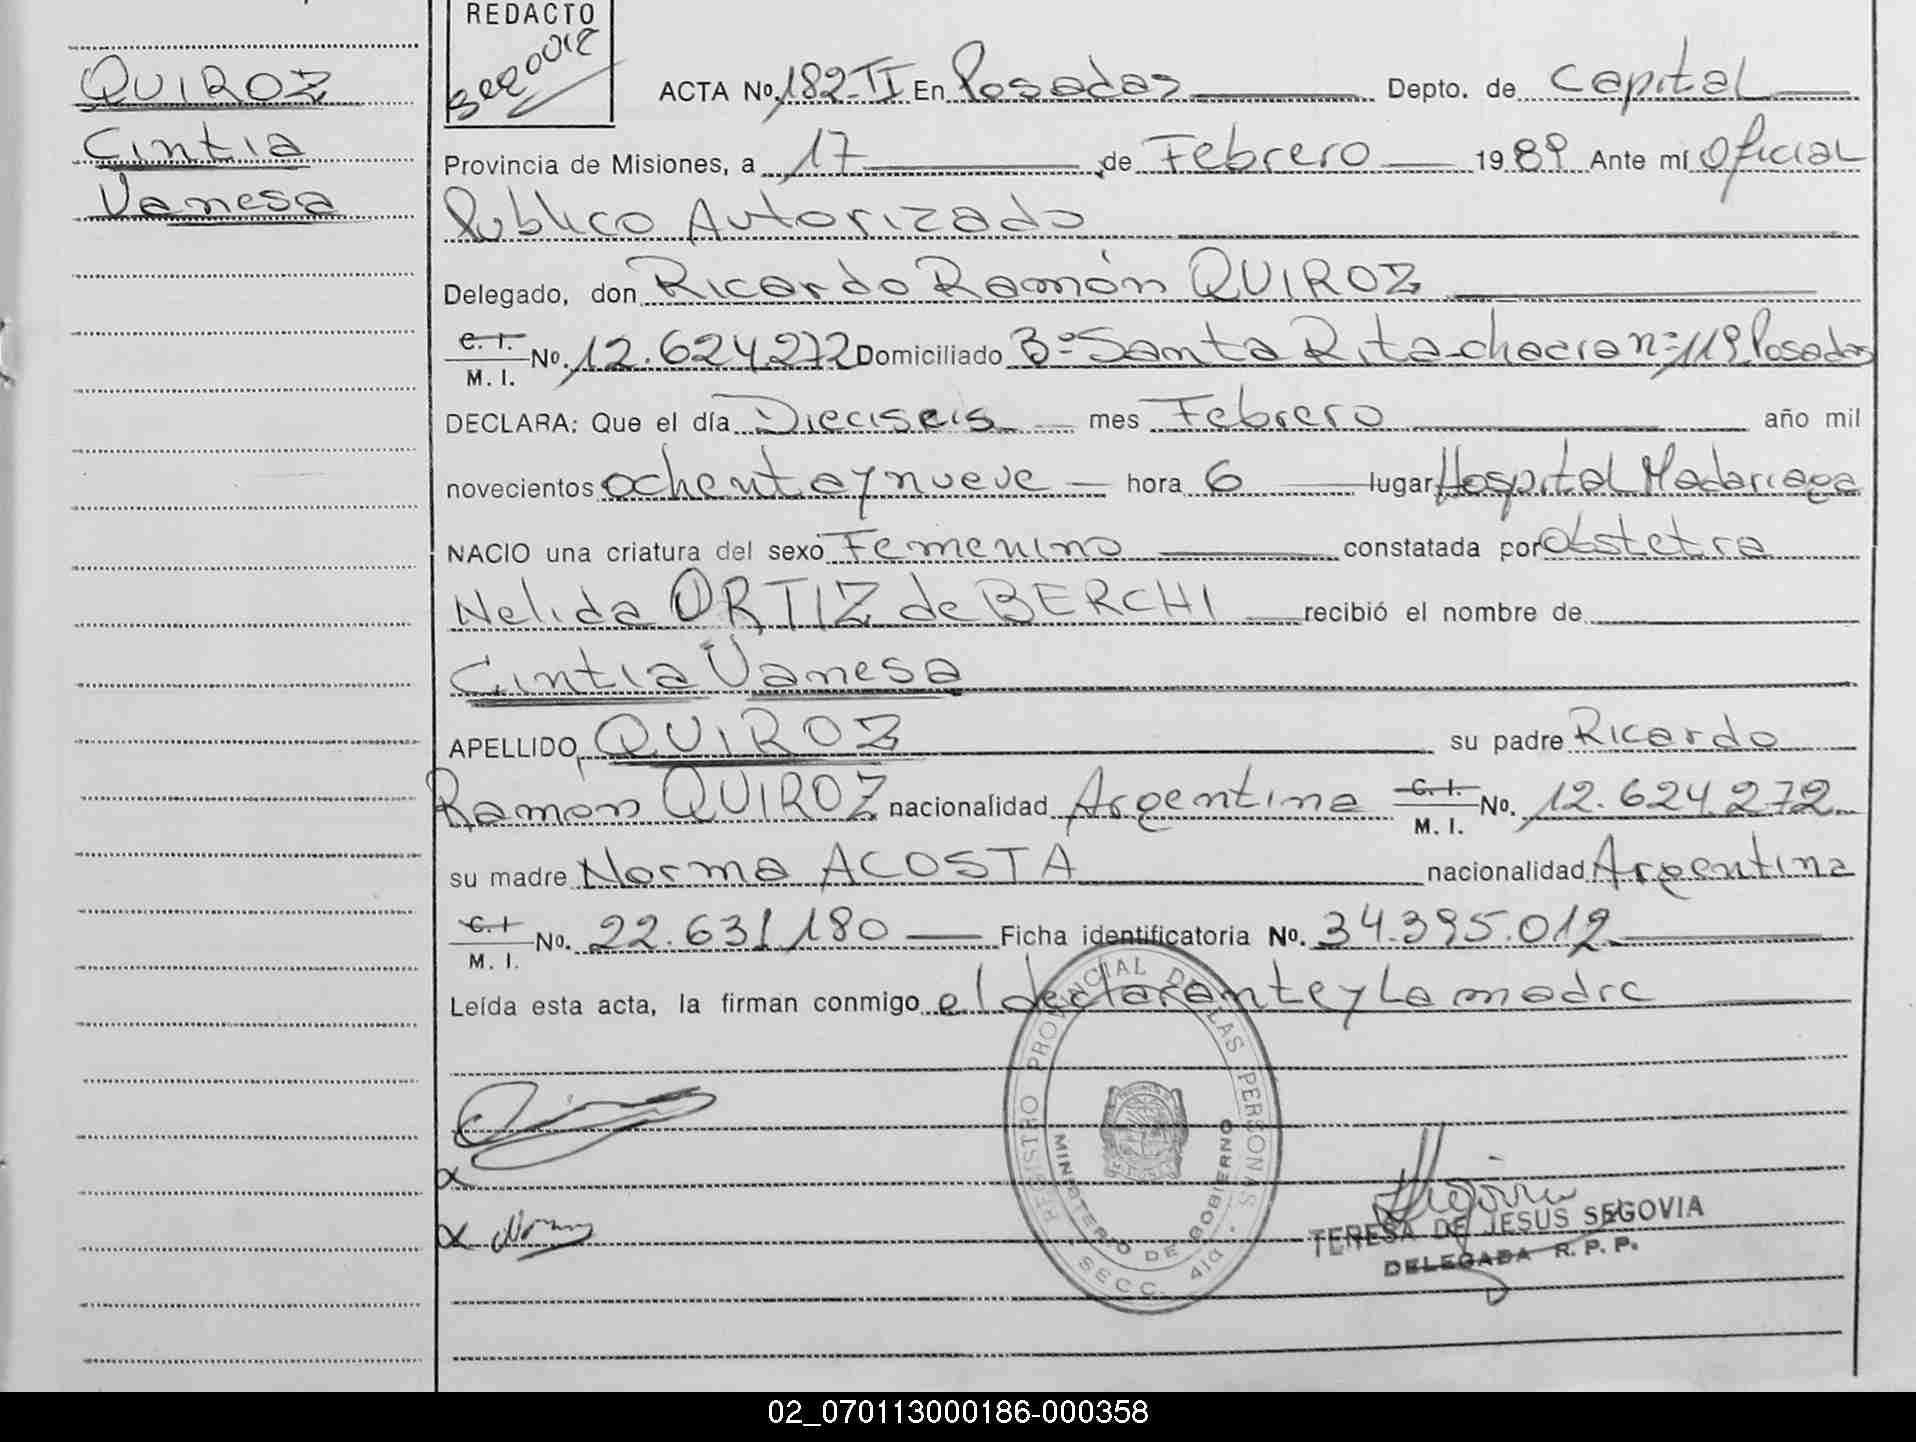 QUIROZ
Cintia
Vanesa
REDACTO
ACTA No. 182-II En Posadas Depto. de Capital
Provincia de Misiones, a 17 de Febrero 1989 Ante mí Oficial
Publico Autorizado
Delegado, don Ricardo Ramón QUIROZ
C. I. / M. I. No. 12.624.272 Domiciliado Bº Santa Rita chacra nº 119 Posadas
DECLARA: Que el día Dieciseis mes Febrero año mil
novecientos ochenta y nueve hora 6 lugar Hospital Madariaga
NACIO una criatura del sexo Femenino constatada por Obstetra
Nelida ORTIZ de BERCHI recibió el nombre de
Cintia Vanesa
APELLIDO QUIROZ su padre Ricardo
Ramón QUIROZ nacionalidad Argentina C. I. / M. I. No. 12.624.272
su madre Norma ACOSTA nacionalidad Argentina
C. I. / M. I. No. 22.631.180 Ficha identificatoria No. 34.395.012
Leída esta acta, la firman conmigo el declarante y la madre
REGISTRO PROVINCIAL DE LAS PERSONAS
MINISTERIO DE GOBIERNO
SECC.
TERESA DE JESUS SEGOVIA
DELEGADA R. P. P.
02_070113000186-000358